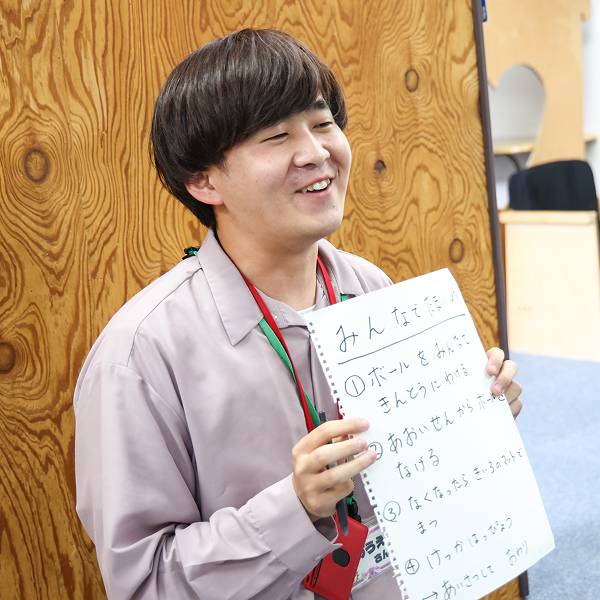 みんなでほ
① ボールをみんなで
きんとうにわける
② あおいせんからボールを
なげる
③ なくなったらきいろのマットで
まつ
④ けっかはっぴょう
→ あいさつして おわり
うえ
さん